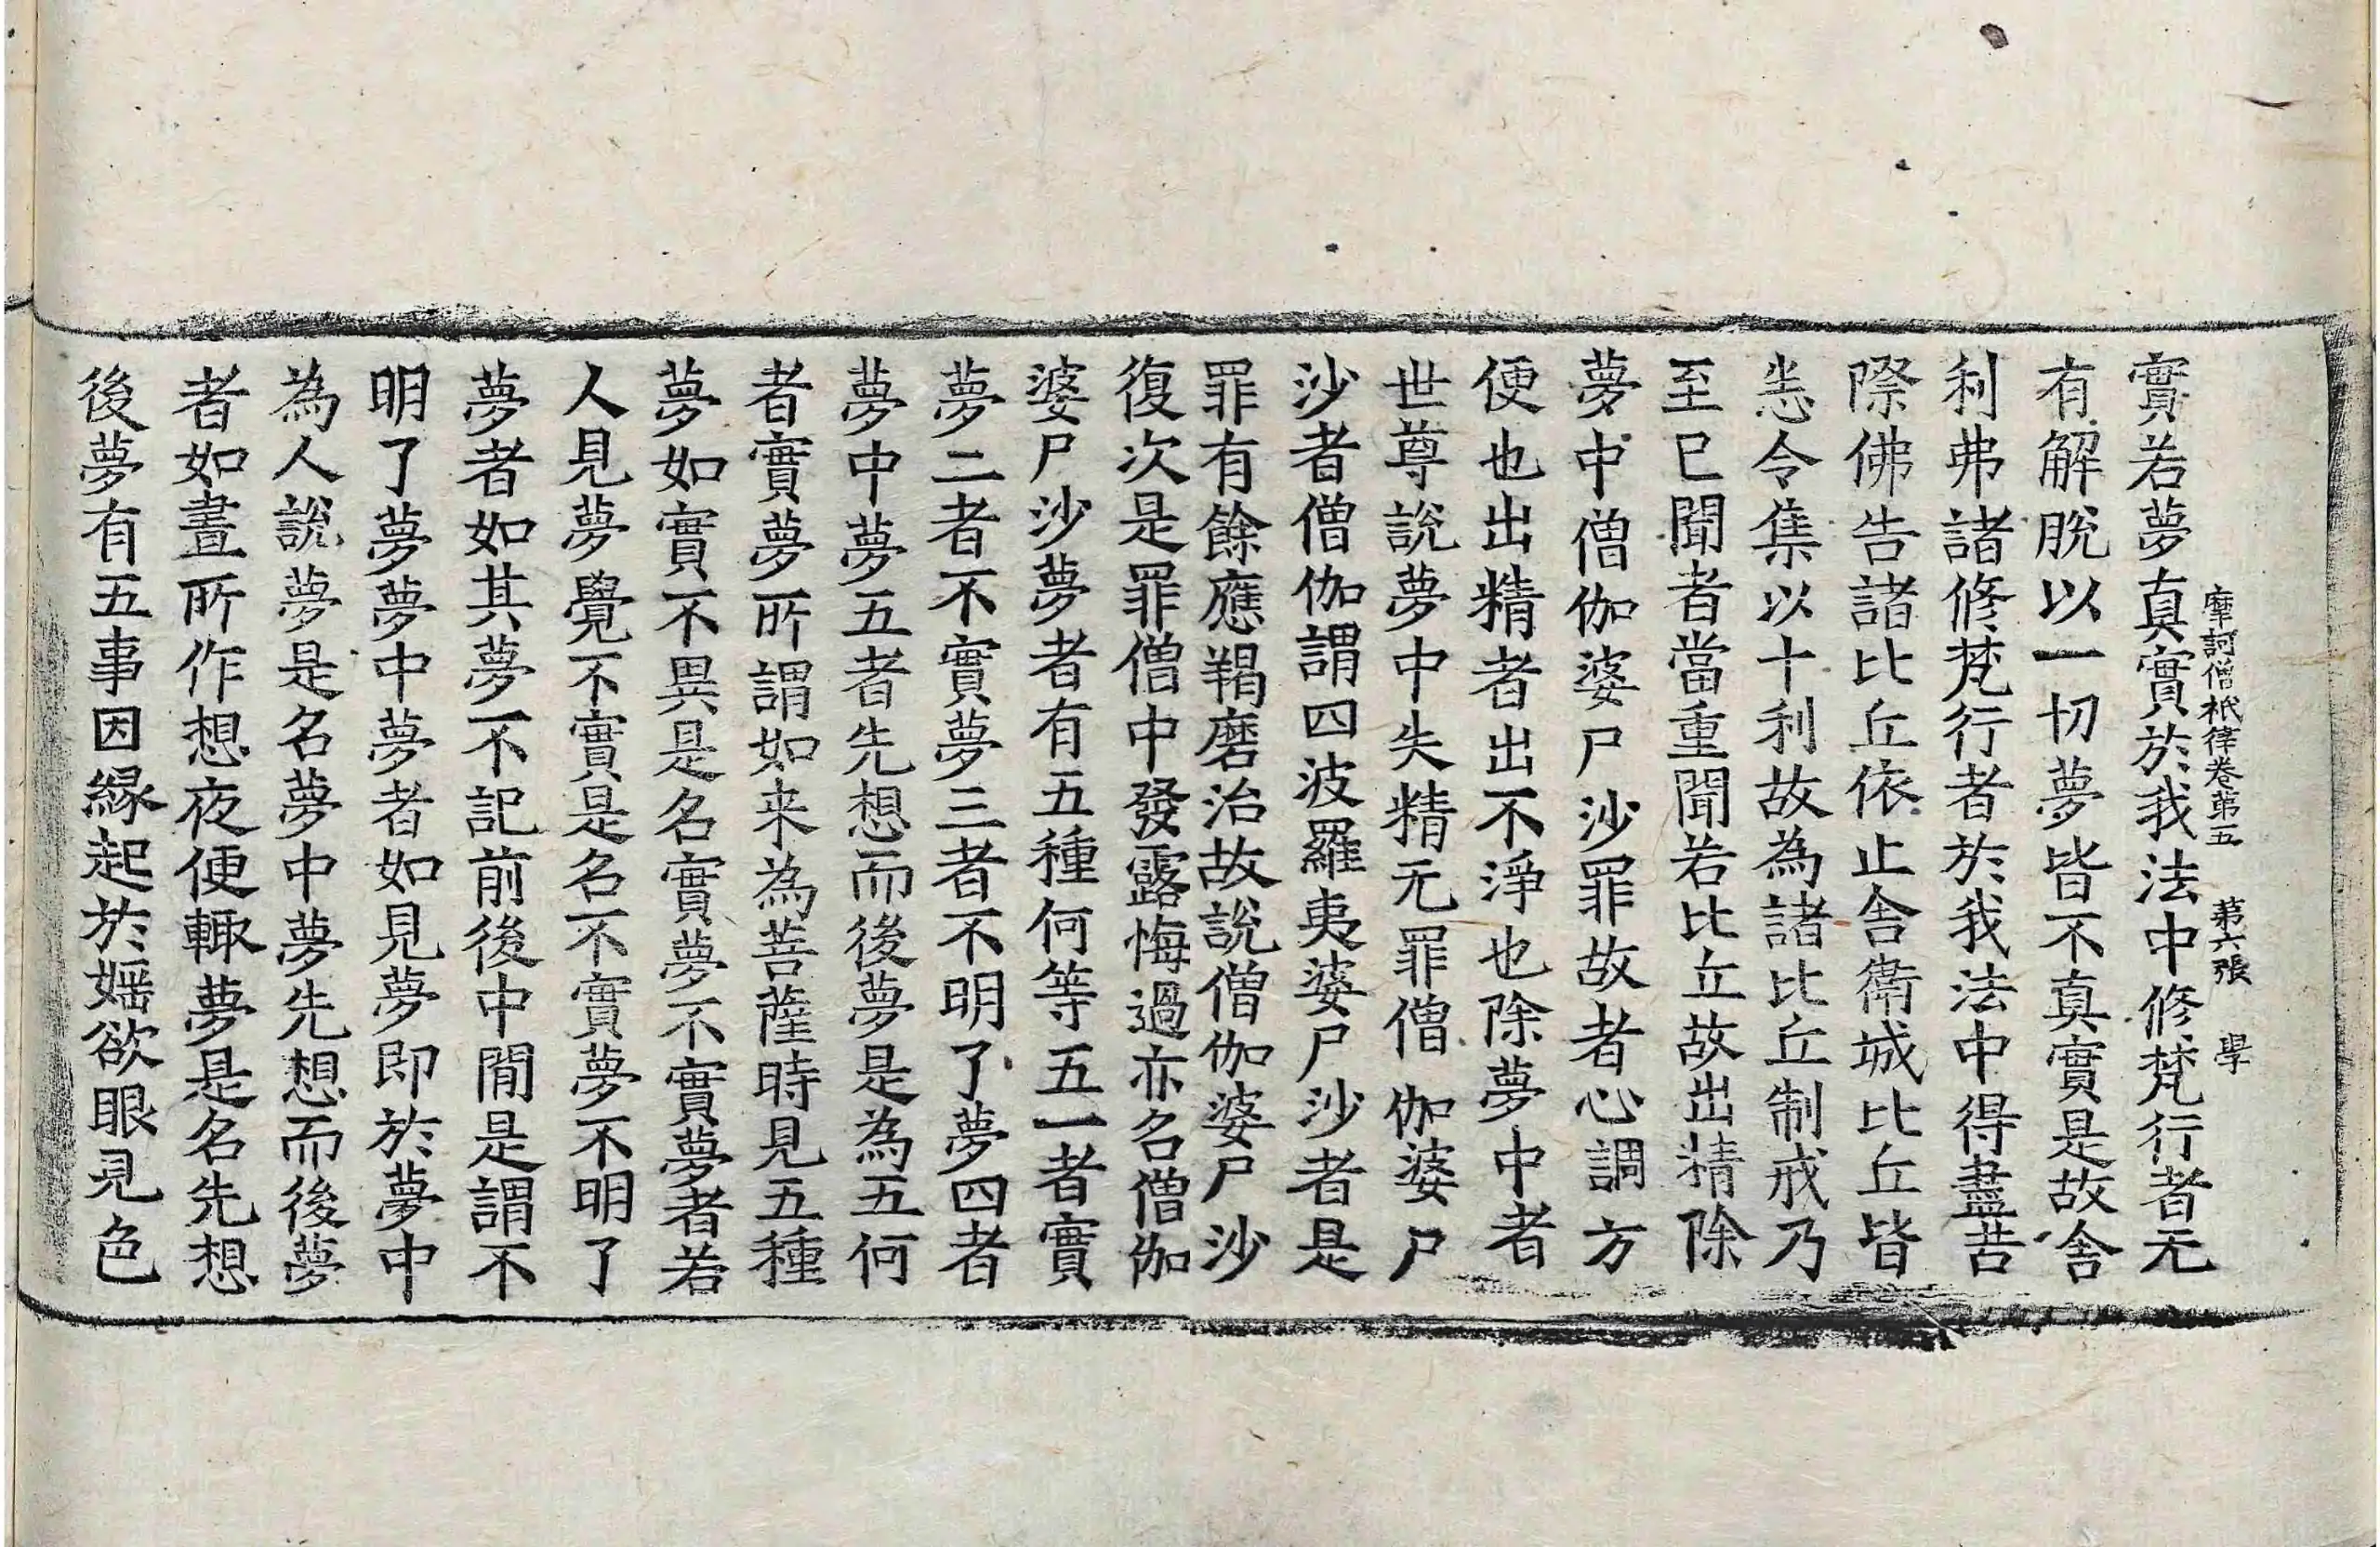 摩訶僧祇律卷第五 第六張 學
實若夢真實於我法中修梵行者无
有解脫以一切夢皆不真實是故舍
利弗諸修梵行者於我法中得盡苦
際佛告諸比丘依止舍衛城比丘皆
悉令集以十利故為諸比丘制戒乃
至已聞者當重聞若比丘故出精除
夢中僧伽婆尸沙罪故者心調方
便也出精者出不淨也除夢中者
世尊說夢中失精无罪僧伽婆尸
沙者僧伽謂四波羅夷婆尸沙者是
罪有餘應羯磨治故說僧伽婆尸沙
復次是罪僧中發露悔過亦名僧伽
婆尸沙夢者有五種何等五一者實
夢二者不實夢三者不明了夢四者
夢中夢五者先想而後夢是為五何
者實夢所謂如来為菩薩時見五種
夢如實不異是名實夢不實夢者若
人見夢覺不實是名不實夢不明了
夢者如其夢不記前後中閒是謂不
明了夢夢中夢者如見夢即於夢中
為人說夢是名夢中夢先想而後夢
者如晝所作想夜便輙夢是名先想
後夢有五事因緣起於婬欲眼見色